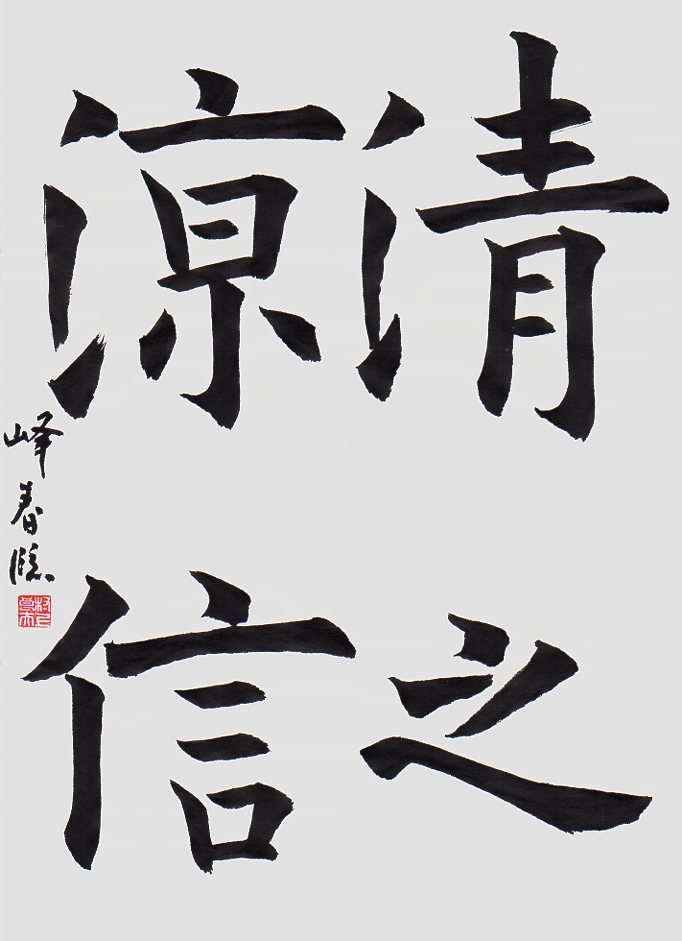 清之
涼信
峰春臨